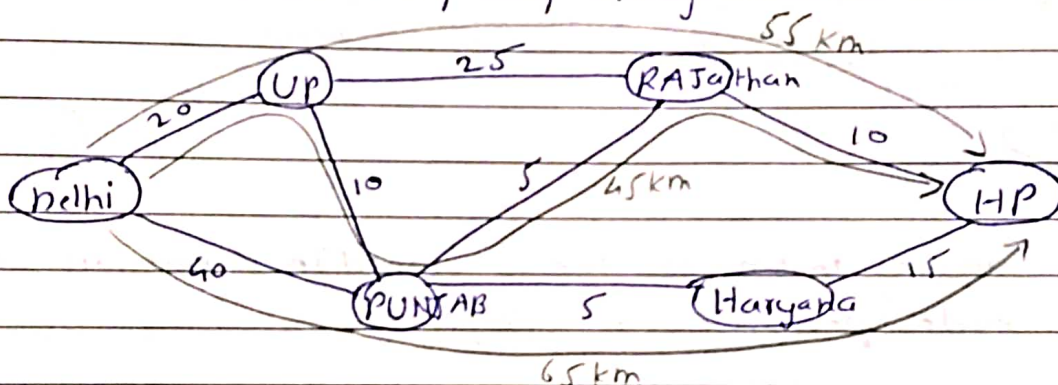 55 km
UP 25 RAJasthan
20
10
Delhi 10 5 45km HP
40 15
PUNJAB 5 Haryana
65 km